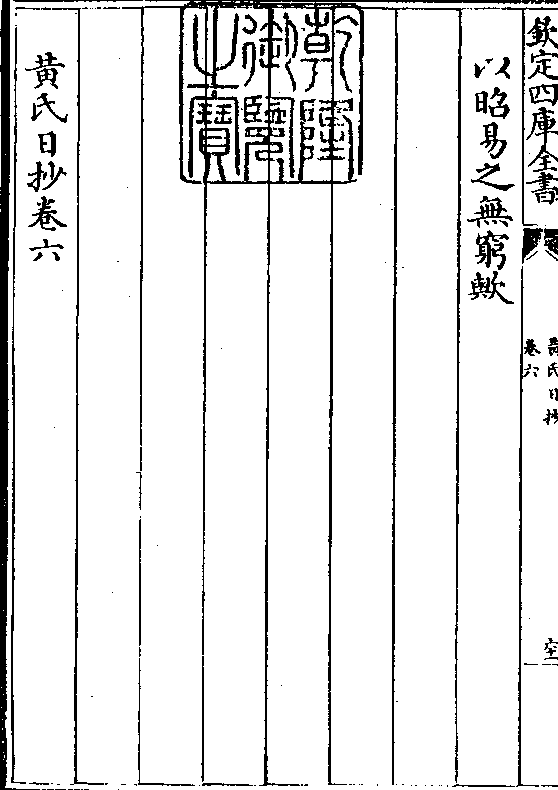 欽定四庫全書
黃氏日抄
卷六
以昭易之無窮歟
乾隆御覽之寶
黃氏日抄卷六